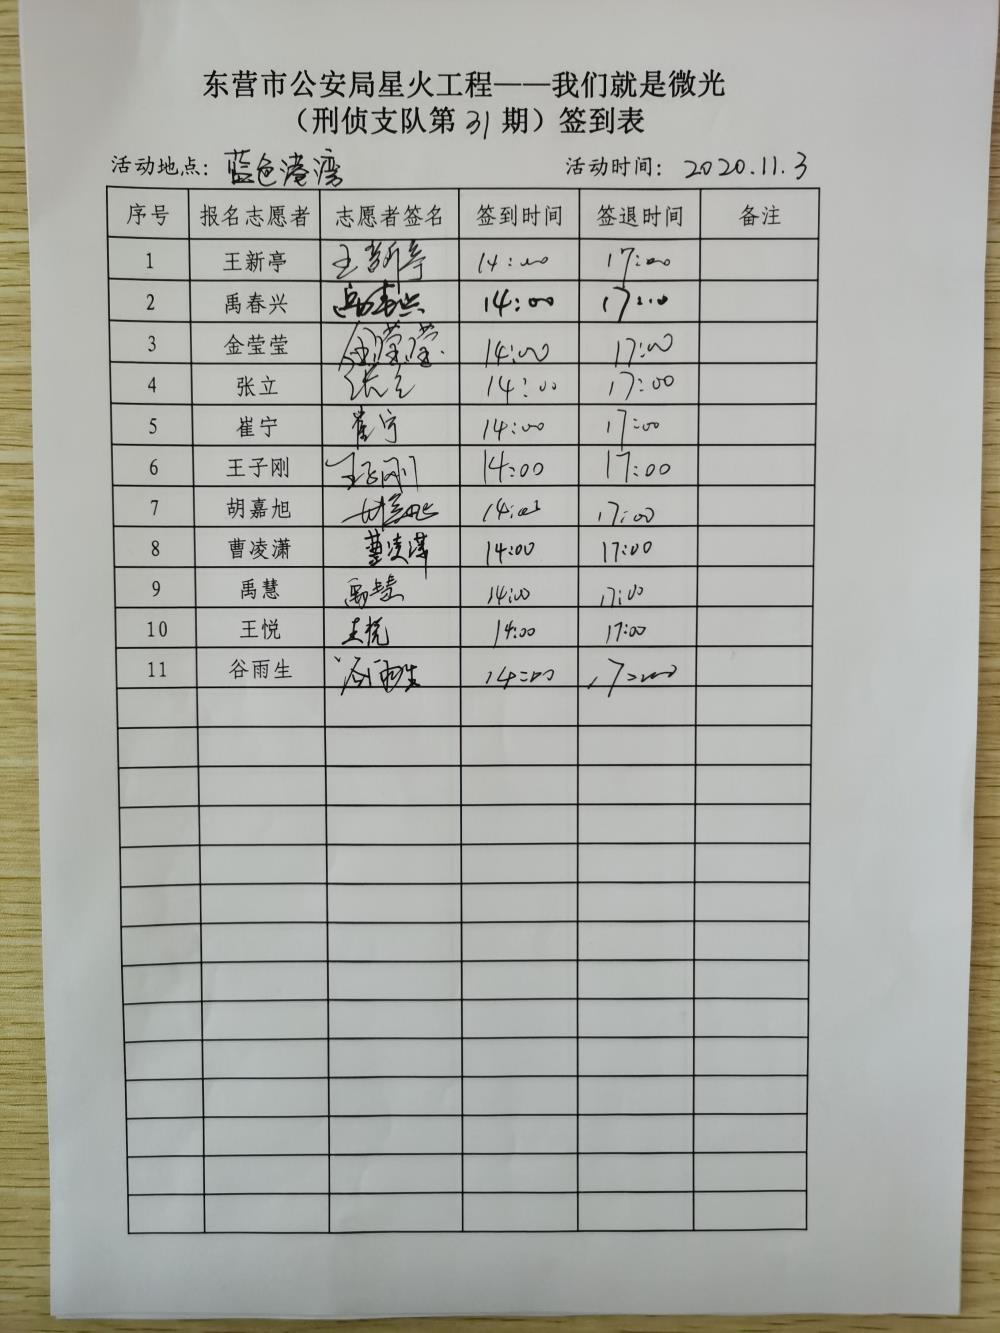 东营市公安局星火工程——我们就是微光
（刑侦支队第31期）签到表
活动地点：蓝色港湾 活动时间：2020.11.3
序号 报名志愿者 志愿者签名 签到时间 签退时间 备注
1 王新亭 王新亭 14:00 17:00
2 禹春兴 禹春兴 14:00 17:00
3 金莹莹 金莹莹 14:00 17:00
4 张立 张立 14:00 17:00
5 崔宁 崔宁 14:00 17:00
6 王子刚 王子刚 14:00 17:00
7 胡嘉旭 胡嘉旭 14:00 17:00
8 曹凌潇 曹凌潇 14:00 17:00
9 禹慧 禹慧 14:00 17:00
10 王悦 王悦 14:00 17:00
11 谷雨生 谷雨生 14:00 17:00